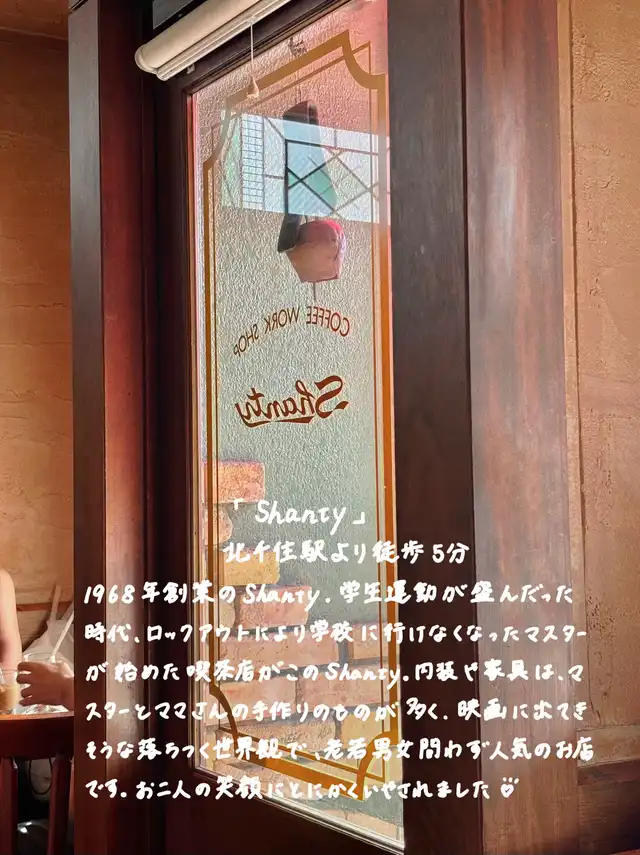 COFFEE WORK SHOP
Shanty
「Shanty」
北千住駅より徒歩5分
1968年創業のShanty. 学生運動が盛んだった
時代、ロックアウトにより学校に行けなくなったマスター
が始めた喫茶店がこのShanty. 内装や家具は、マ
スターとママさんの手作りのものが多く、映画に出てき
そうな落ちつく世界観で、老若男女問わず人気のお店
です。お二人の笑顔にとにかくいやされました♡